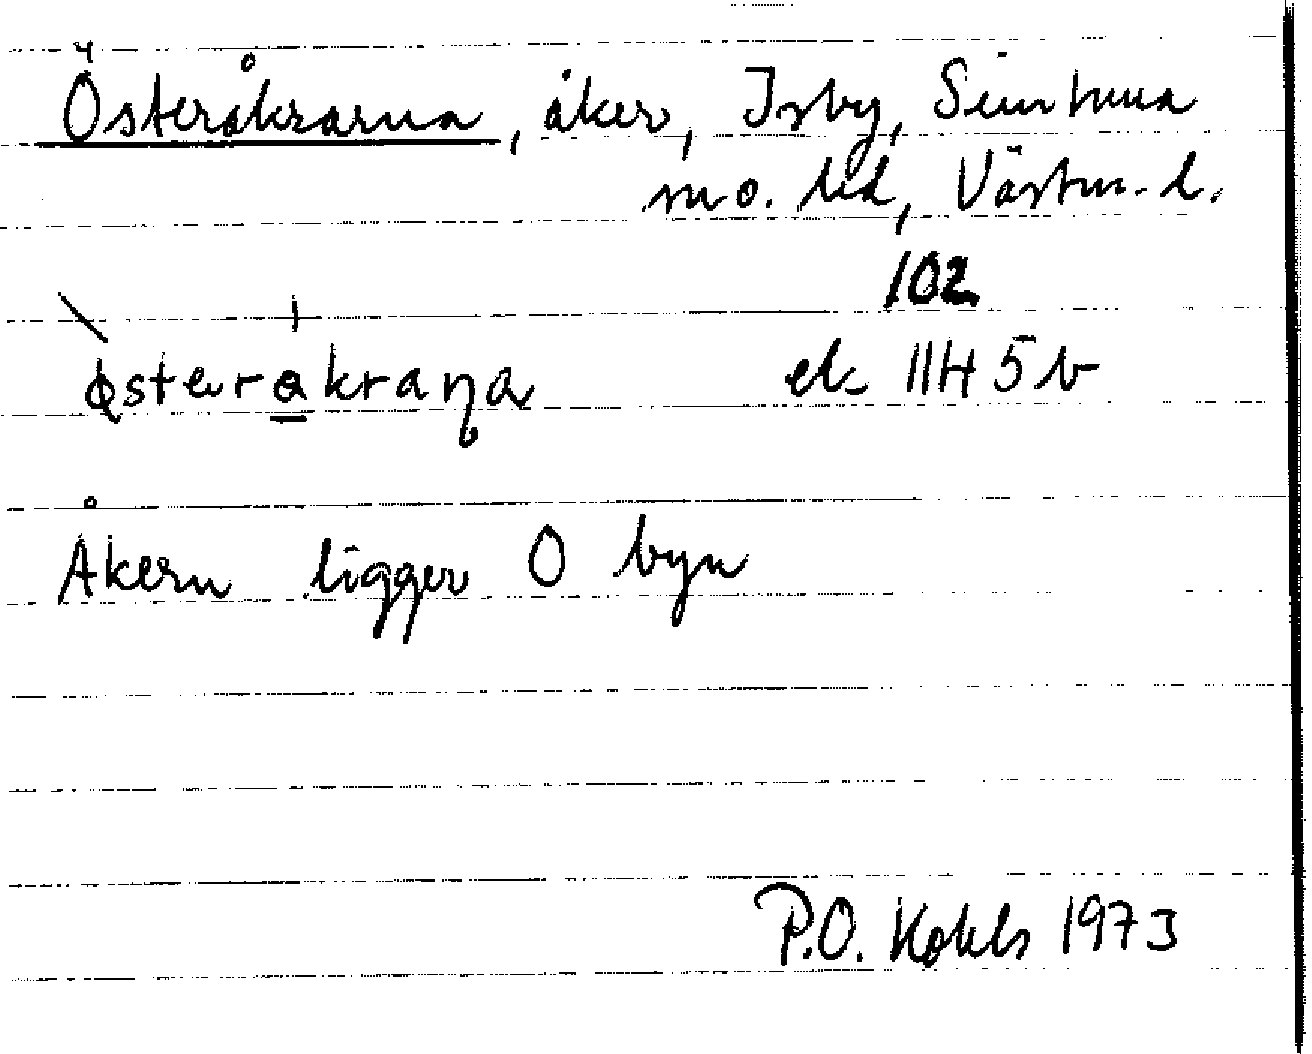 Österåkrarna, åker, Isby, Simtuna
sn o. hd, Västm. l.
102
østerakraṇa ek. 11H 5b
Åkern ligger O byn
P.O. 1973